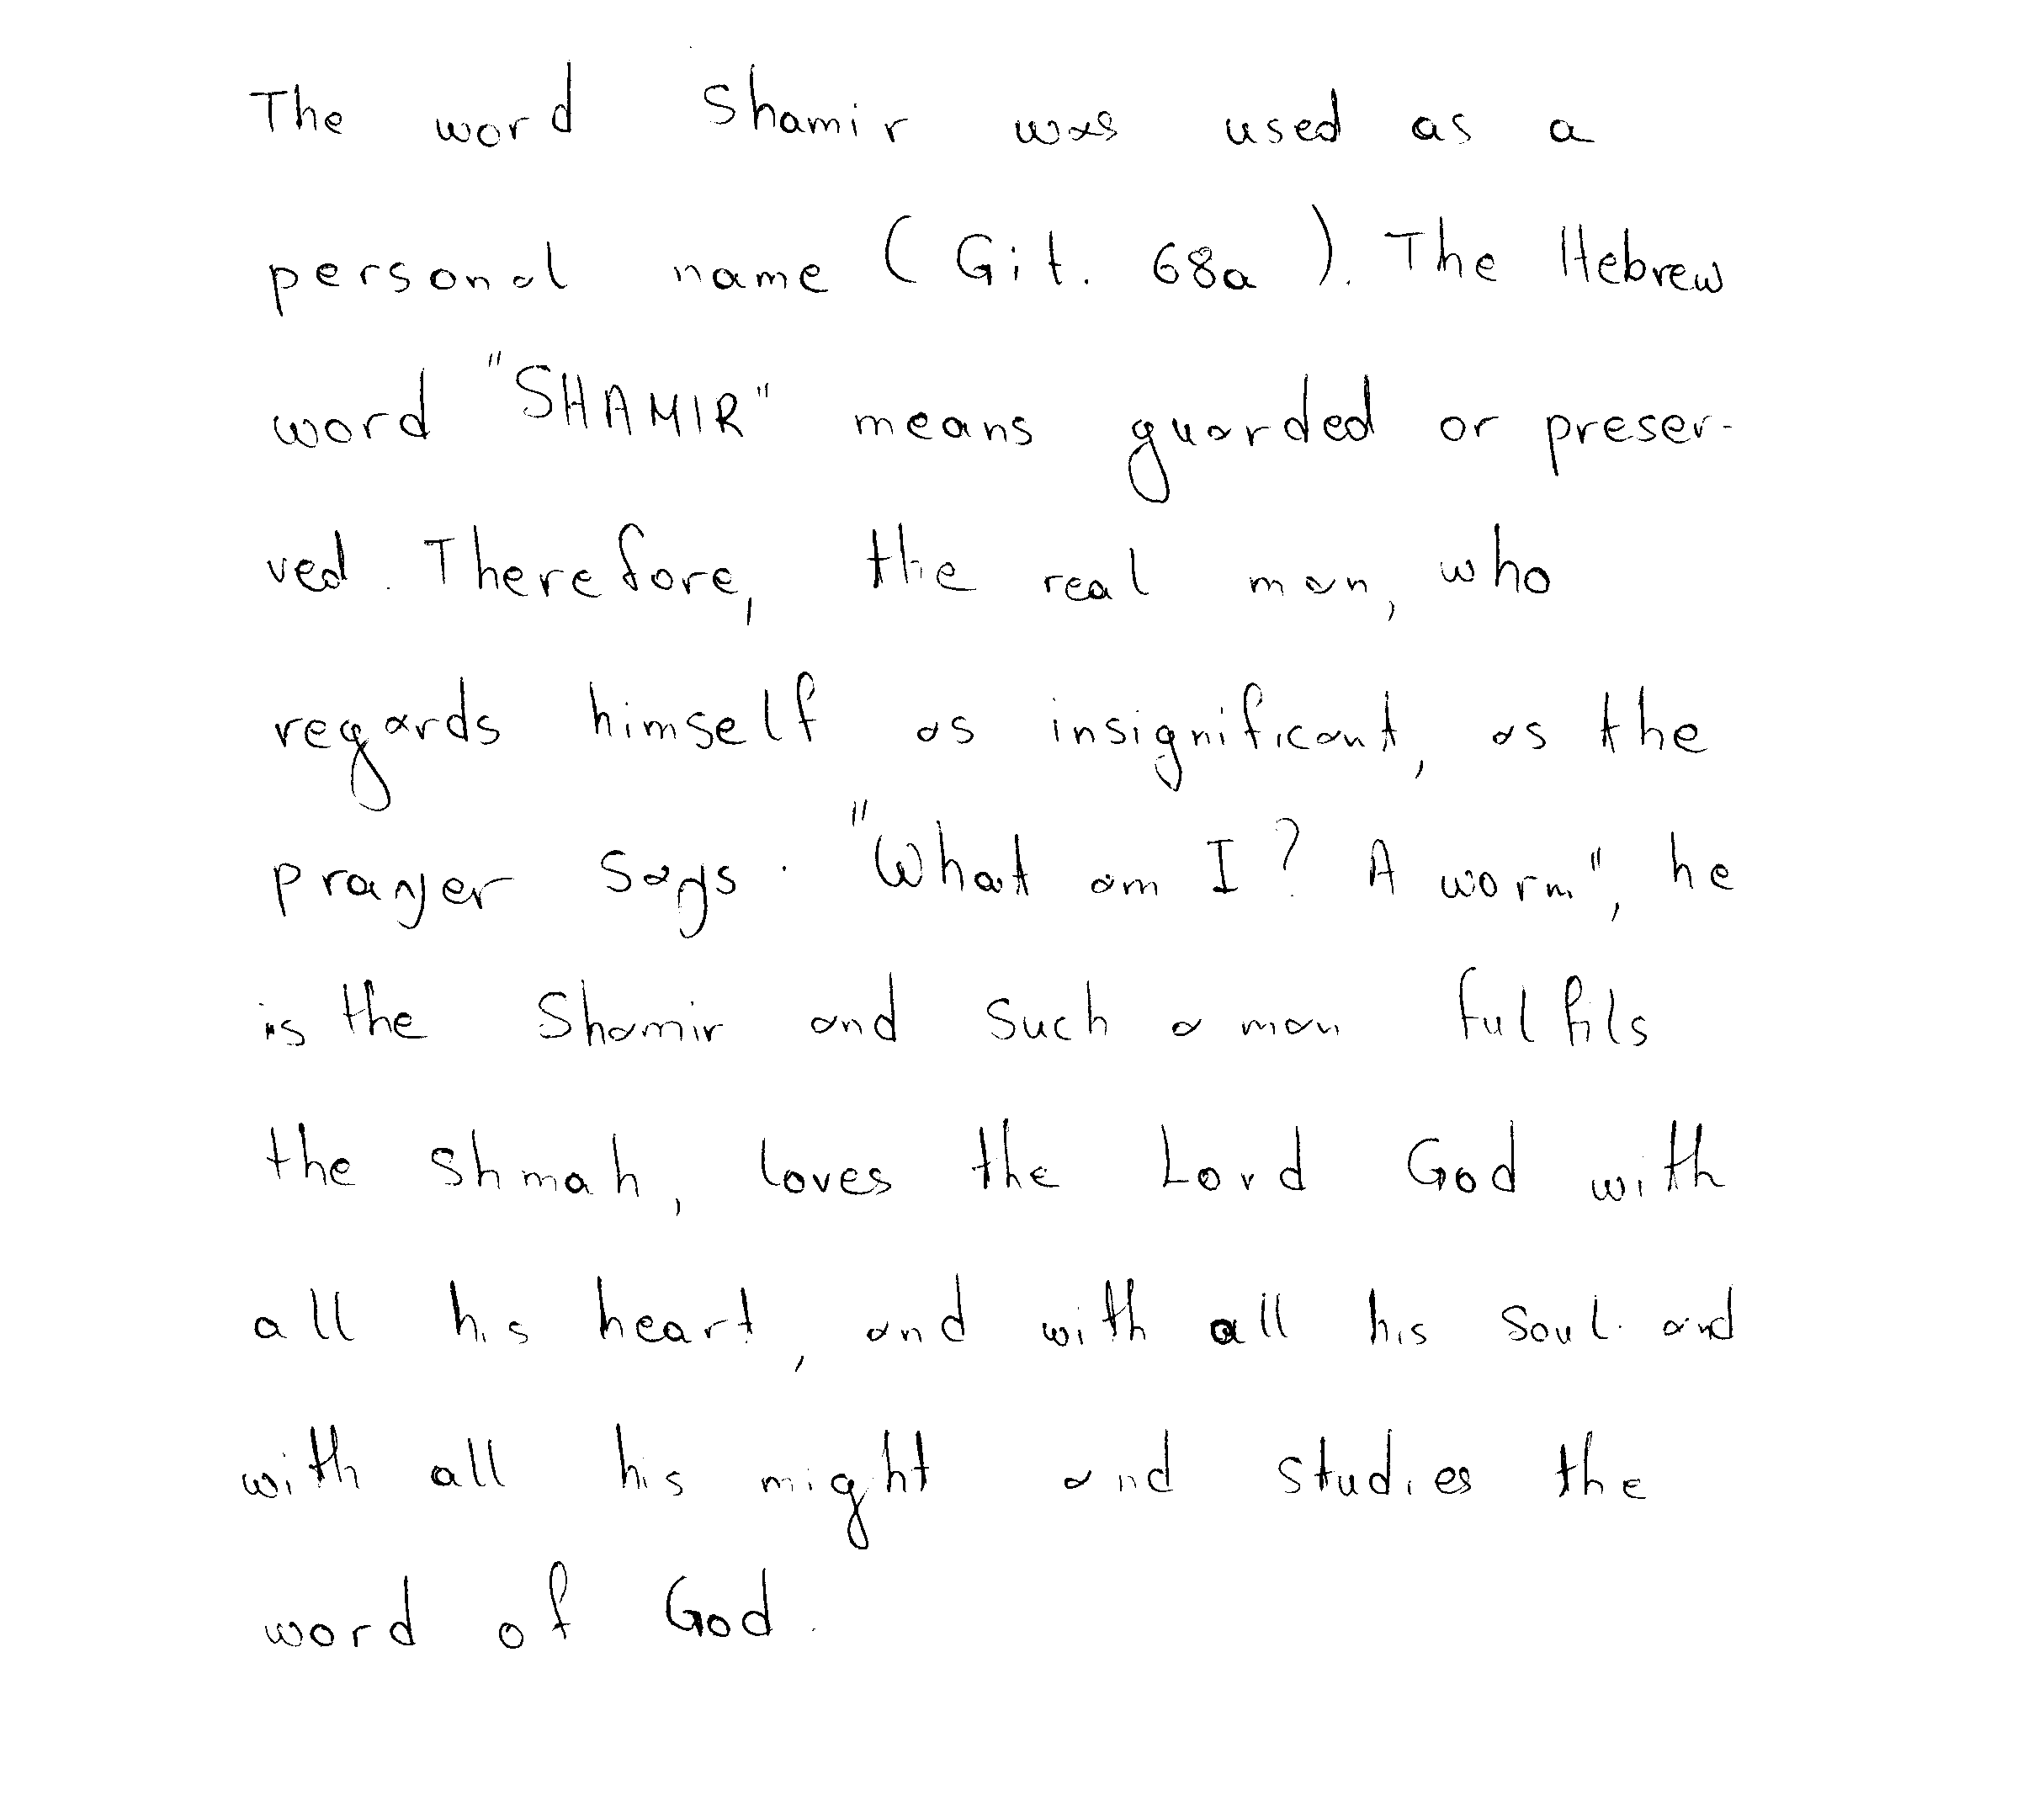 The word Shamir was used as a
personal name (Git. 68a). The Hebrew
word "SHAMIR" means guarded or preser-
ved. Therefore, the real man, who
regards himself as insignificant, as the
prayer says. "What am I? A worm", he
is the Shamir and such a man fulfils
the shmah, loves the Lord God with
all his heart, and with all his soul and
with all his might and studies the
word of God.